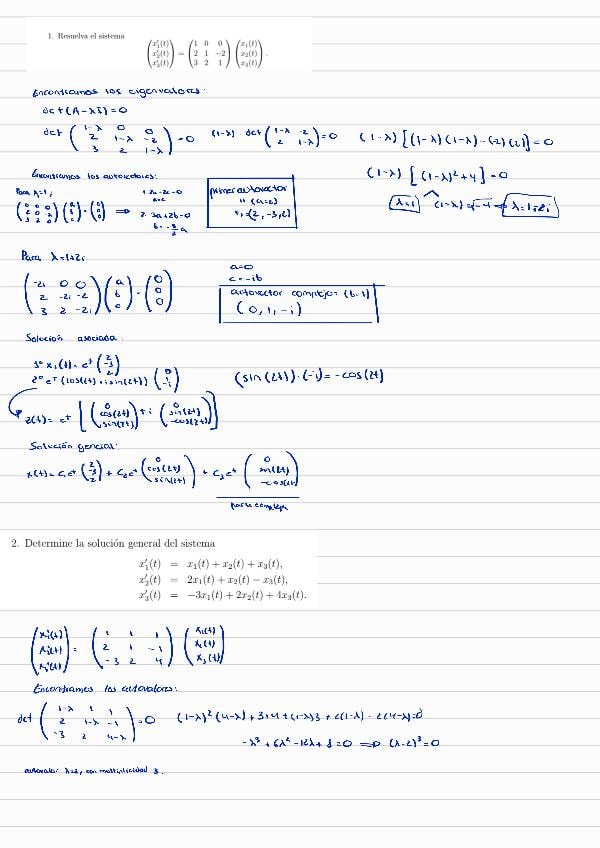 1. Resuelva el sistema
(x₁'(t) x₂'(t) x₃'(t)) = (1 0 0; 2 1 −2; 3 2 1) (x₁(t) x₂(t) x₃(t)).
Encontramos los eigenvalores:
det(A-λI)=0
det (1-λ 0 0; 2 1-λ -2; 3 2 1-λ) =0 (1-λ) det (1-λ -2; 2 1-λ) =0 (1-λ) [(1-λ)(1-λ)-(-2)(2)] =0
(1-λ) [(1-λ)²+4] =0
λ=1 (1-λ)=√-4 ⇒ λ=1±2i
Encontramos los autovectores:
Para λ=1;
(0 0 0; 2 0 -2; 3 2 0) (a b c) = (0 0 0) ⇒ 1. 2a-2c=0
a=c
2. 3a+2b=0
b=-3/2 a
primer autovector
(a=2)
v₁=(2,-3,2)
Para λ=1+2i
(-2i 0 0; 2 -2i -2; 3 2 -2i) (a b c) = (0 0 0)
a=0
c=-ib
autovector complejo: (b=1)
(0,1,-i)
Solución asociada:
1° x₁(t)= eᵗ (2 -3 2)
2° eᵗ (cos(2t)+isin(2t)) (0 1 -i) (sin(2t))·(-i)=-cos(2t)
z(t)= eᵗ [(0 cos(2t) sin(2t)) + i (0 sin(2t) -cos(2t))]
Solución general:
x(t)= c₁eᵗ (2 -3 2) + c₂eᵗ (0 cos(2t) sin(2t)) + c₃eᵗ (0 sin(2t) -cos(2t))
parte compleja
2. Determine la solución general del sistema
x₁'(t) = x₁(t) + x₂(t) + x₃(t),
x₂'(t) = 2x₁(t) + x₂(t) − x₃(t),
x₃'(t) = −3x₁(t) + 2x₂(t) + 4x₃(t).
(x₁'(t) x₂'(t) x₃'(t)) = (1 1 1; 2 1 -1; -3 2 4) (x₁(t) x₂(t) x₃(t))
Encontramos los autovalores:
det (1-λ 1 1; 2 1-λ -1; -3 2 4-λ) =0 (1-λ)²(4-λ)+3+4+(1-λ)3+2(1-λ)-2(4-λ)=0
-λ³+6λ²-12λ+8=0 ⇒ (λ-2)³=0
autovalor λ=2, con multiplicidad 3.